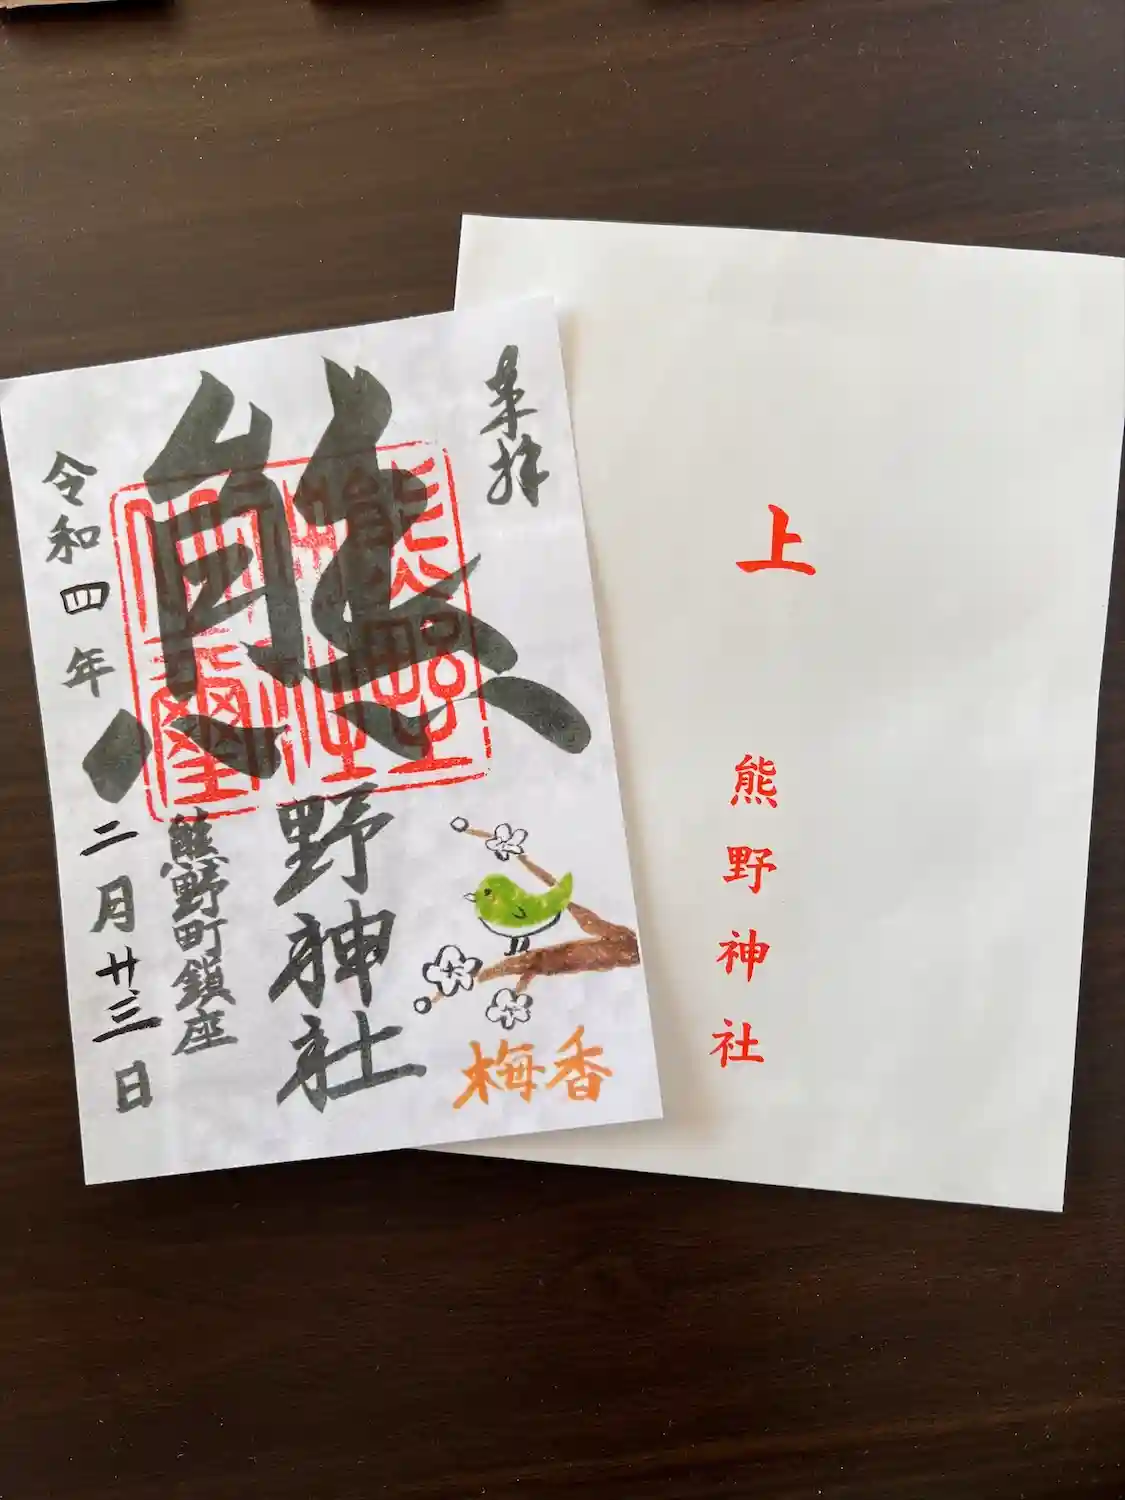 奉拝
熊野神社
熊野町鎮座
令和四年二月廿三日
梅香
上
熊野神社